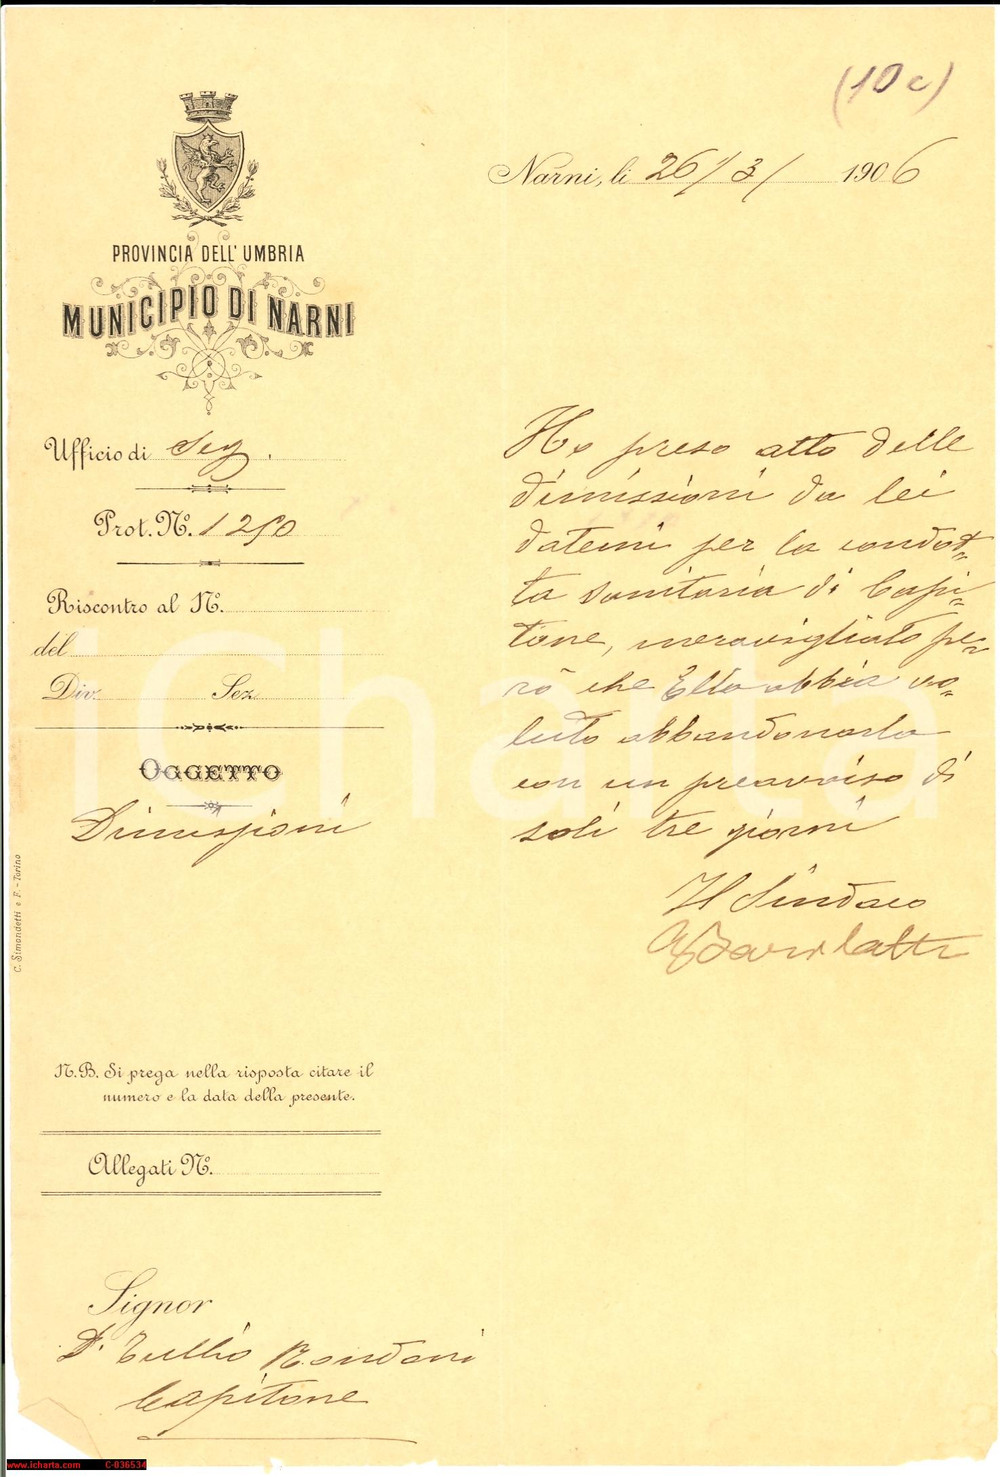 (10 c)
Narni, li 26/3/ 1906
PROVINCIA DELL'UMBRIA
MUNICIPIO DI NARNI
Ufficio di Seg.
Prot. N.º 1250
Riscontro al N.º
del
Div. Sez.
OGGETTO
Dimissioni
Ho preso atto delle
dimissioni da lei
datemi per la condot-
ta sanitaria di Capi-
tone, meravigliato pe-
rò che Ella abbia vo-
luto abbandonarla
con un preavviso di
soli tre giorni
Il Sindaco
C. Simondetti e F. - Torino
N.B. Si prega nella risposta citare il
numero e la data della presente.
Allegati N.º
Signor
Dr. Tullio Rondoni
Capitone
iCharta
www.icharta.com C-036534